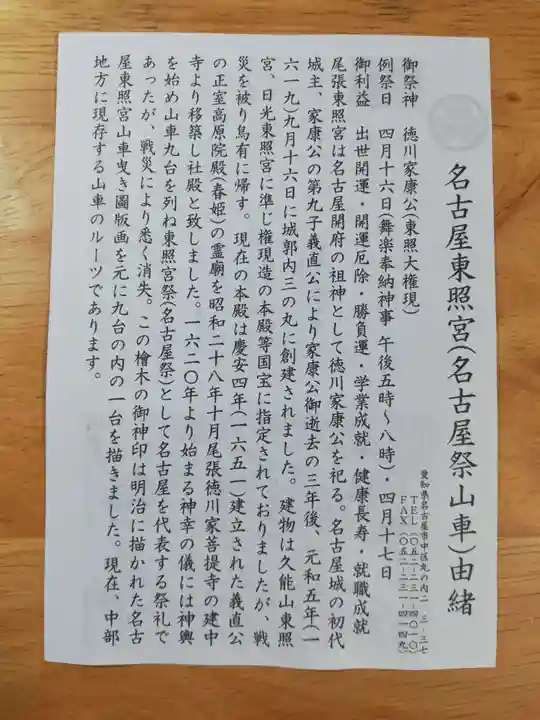 名古屋東照宮(名古屋祭山車)由緒
愛知県名古屋市中区丸の内二-三-三七
TEL(〇五二-二三一-四〇一〇)
FAX(〇五二-二三一-四一四九)
御祭神 徳川家康公(東照大権現)
例祭日 四月十六日(舞楽奉納神事 午後五時〜八時)・四月十七日
御利益 出世開運・開運厄除・勝負運・学業成就・健康長寿・就職成就
尾張東照宮は名古屋開府の祖神として徳川家康公を祀る。名古屋城の初代
城主、家康公の第九子義直公により家康公御逝去の三年後、元和五年(一
六一九)九月十六日に城郭内三の丸に創建されました。 建物は久能山東照
宮、日光東照宮に準じ権現造の本殿等国宝に指定されておりましたが、戦
災を被り烏有に帰す。現在の本殿は慶安四年(一六五一)建立された義直公
の正室高原院殿(春姫)の霊廟を昭和二十八年十月尾張徳川家菩提寺の建中
寺より移築し社殿と致しました。一六二〇年より始まる神幸の儀には神輿
を始め山車九台を列ね東照宮祭(名古屋祭)として名古屋を代表する祭礼で
あったが、戦災により悉く消失。この檜木の御神印は明治に描かれた名古
屋東照宮山車曳き圖版画を元に九台の内の一台を描きました。現在、中部
地方に現存する山車のルーツであります。